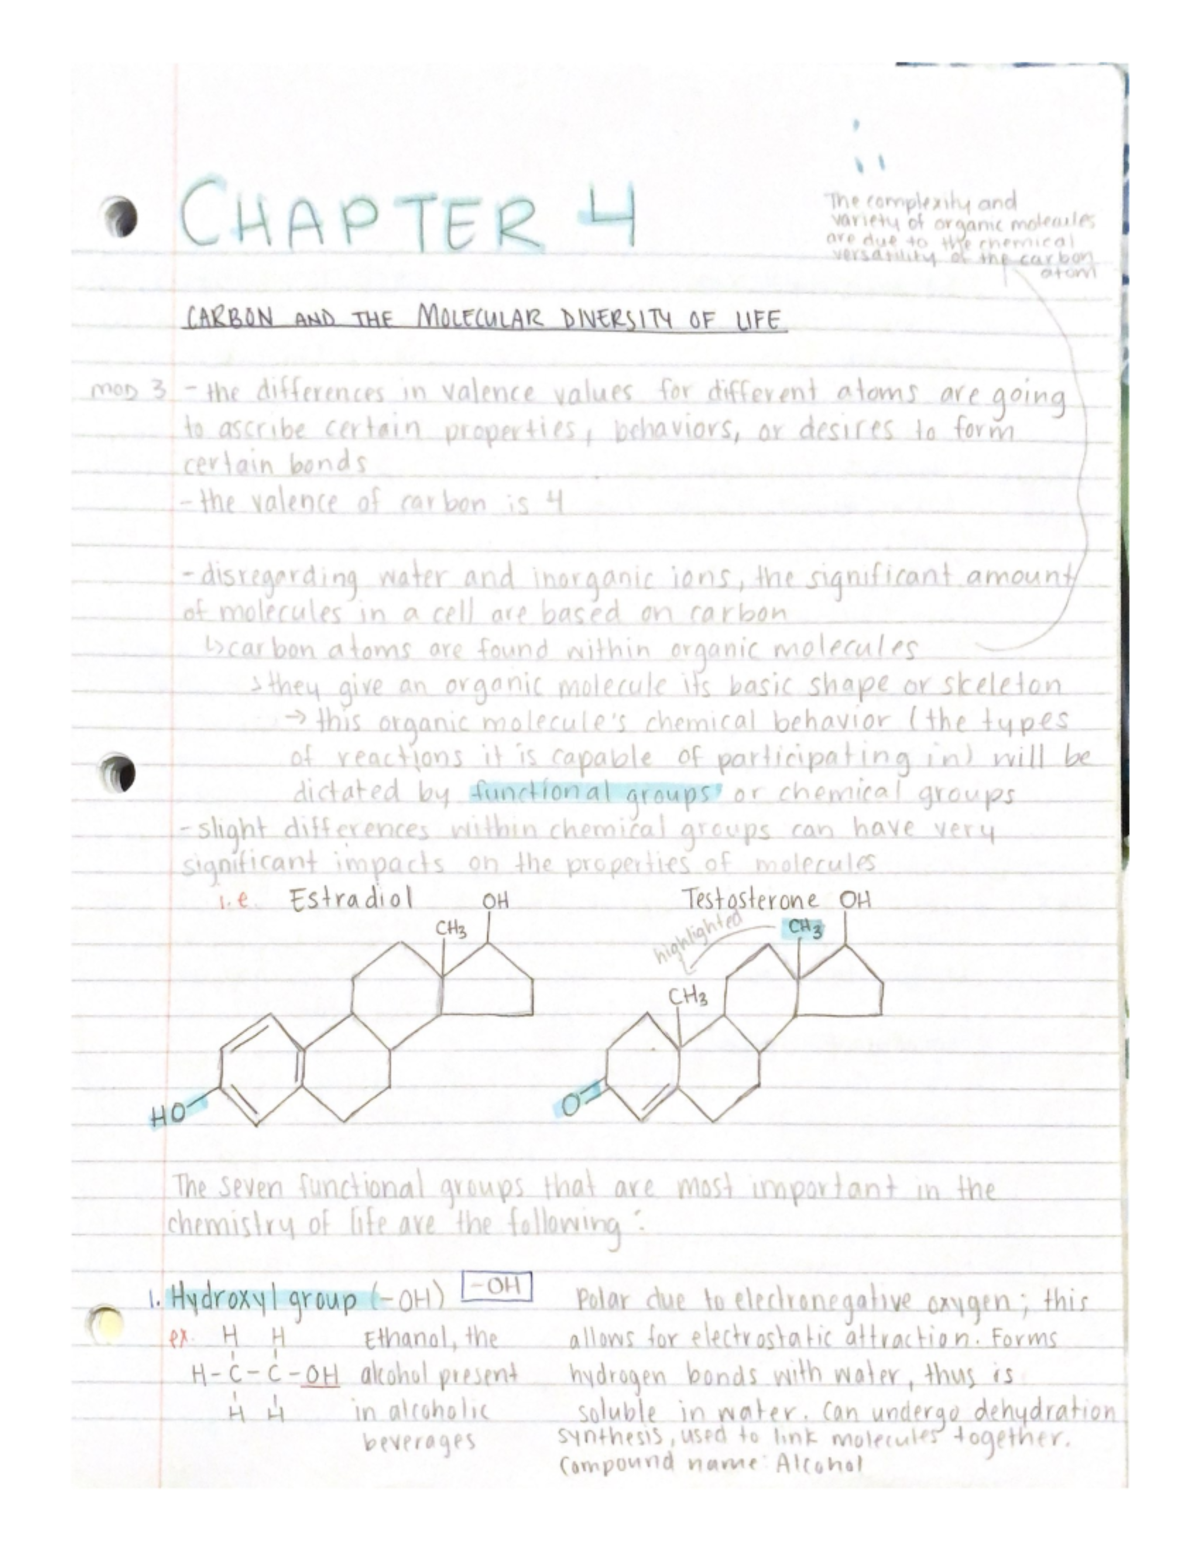 CHAPTER 4
The complexity and
variety of organic molecules
are due to the chemical
versatility of the carbon
atom
CARBON AND THE MOLECULAR DIVERSITY OF LIFE
mod 3 - the differences in valence values for different atoms are going
to ascribe certain properties, behaviors, or desires to form
certain bonds
- the valence of carbon is 4
- disregarding water and inorganic ions, the significant amount
of molecules in a cell are based on carbon
↳ carbon atoms are found within organic molecules
↳ they give an organic molecule its basic shape or skeleton
→ this organic molecule's chemical behavior (the types
of reactions it is capable of participating in) will be
dictated by functional groups or chemical groups
- slight differences within chemical groups can have very
significant impacts on the properties of molecules
i.e. Estradiol OH Testosterone OH
CH3 highlighted CH3
CH3
HO O
The seven functional groups that are most important in the
chemistry of life are the following:
1. Hydroxyl group (-OH) -OH Polar due to electronegative oxygen; this
ex. H H Ethanol, the allows for electrostatic attraction. Forms
H-C-C-OH alcohol present hydrogen bonds with water, thus is
H H in alcoholic soluble in water. Can undergo dehydration
beverages synthesis, used to link molecules together.
Compound name: Alcohol